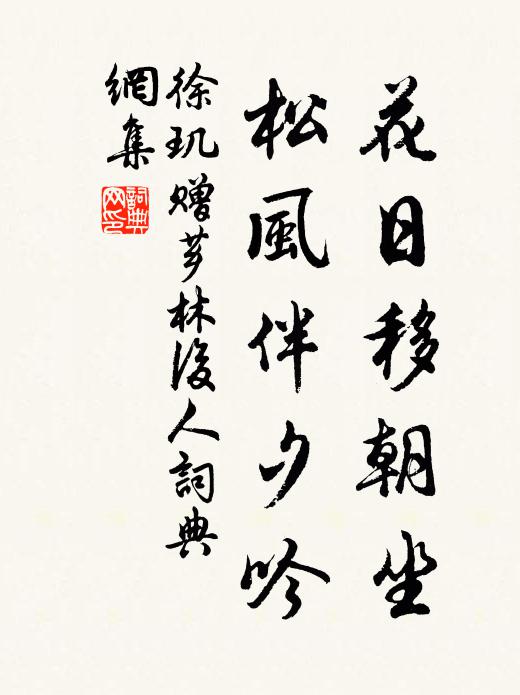 花日移朝坐
松風伴夕吟
徐玑赠芗林後人詞典
網集
詞典网印